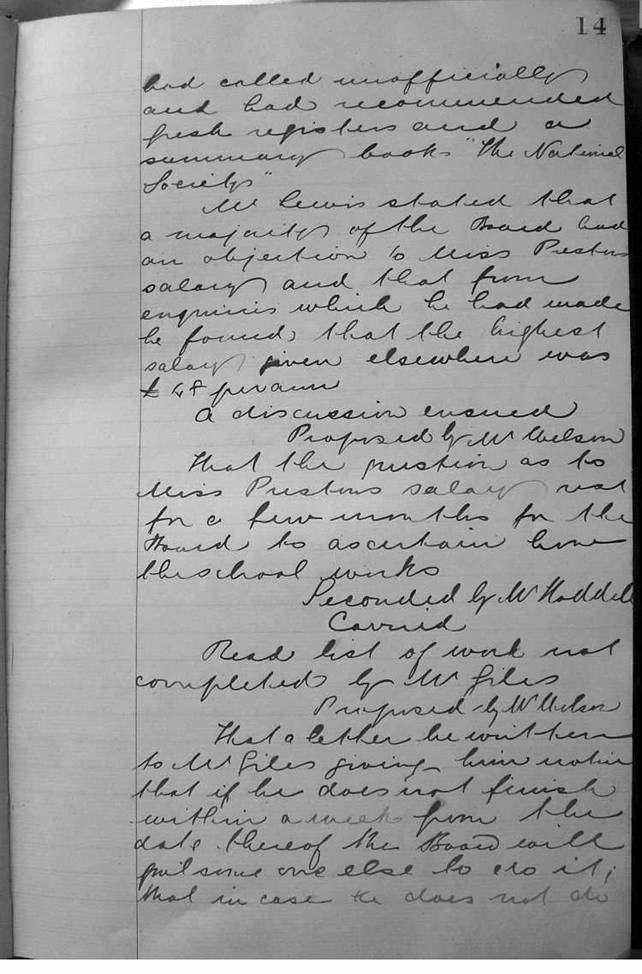 14
had called unofficially
and had recommended
fresh registers and a
summary book "The National
Society"
Mr Lewis stated that
a majority of the Board had
an objection to Miss Prestons
salary and that from
enquiries which he had made
he found that the highest
salary given elsewhere was
£ 48 per ann
A discussion ensued
Proposed by Mr Welson
That the question as to
Miss Prestons salary rest
for a few months for the
Board to ascertain how
the school works
Seconded by Mr Haddell
Carried
Read list of work not
completed by Mr Giles
Proposed by Mr Welson
That a letter be written
to Mr Giles giving him notice
that if he does not finish
within a week from the
date thereof the Board will
put some one else to do it;
that in case he does not do